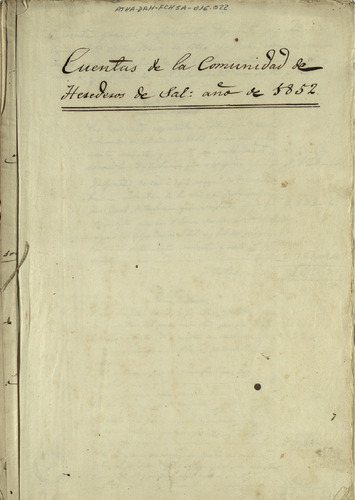 ATHA-DAH-FCHSA-016-022
Cuentas de la Comunidad de
Herederos de Sal: año de 1852.